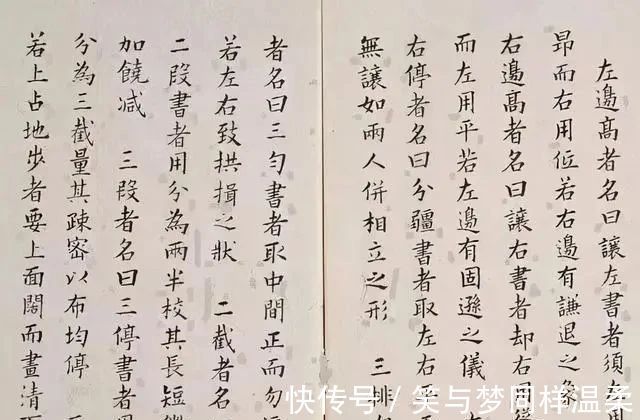 左邉髙者名曰讓左書者須左
昻而右用低若右邉有謙退之象
右邉髙者名曰讓右書者却右
而左用平若左邉有固遜之儀
右停者名曰分疆書者取左右
無讓如兩人併相立之形 三排
者名曰三勻書者取中間正而勿
若左右致拱揖之狀 二截者名
二段書者用分為兩半校其長短
加饒减 三段者名曰三停書者
分為三截量其疎密以布均停
若上占地步者要上面闊而畫清
快传号/笑与梦同样温柔